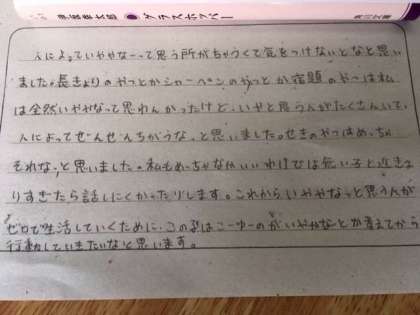 伊坂幸太郎 ●グラスホッパー 角川文庫
人によっていややなーって思う所がちゃうくて気をつけないとなと思い
ました。長きょりのやつとかシャーペンのやつとか宿題のやつは私
は全然いややなって思わんかったけど、いやと思う人がたくさんいて、
人によってぜんぜんちがうな、と思いました。せきのやつはめっちゃ
それな、と思いました。私もめっちゃなかいいわけでは无い子と近きょ
りすぎたら話しにくかったりします。これからいややなっと思う人が
ゼロで生活していくために、この子はこーゆーのがいややなとか考えてから
行動していきたいなと思います。